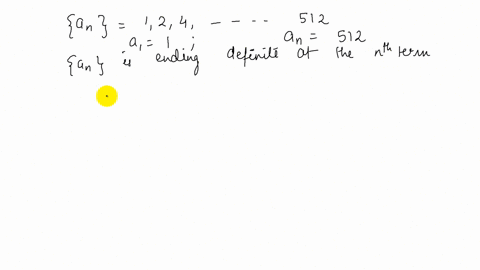 {aₙ} = 1, 2, 4, - - - - - 512
a₁ = 1 ; aₙ = 512
{aₙ} is ending definite at the nᵗʰ term